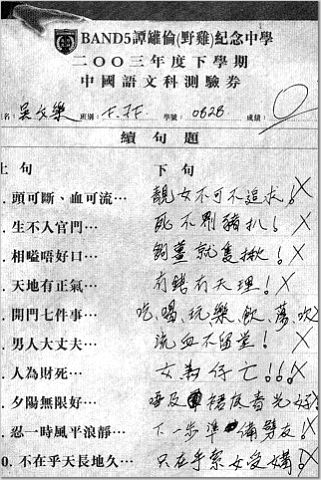 BAND5譚鏟倫(野雞)紀念中學
二〇〇三年度下學期
中國語文科測驗券
名: 吳文樂 班別: F.7F. 學號: 0626 成績: 0
續句題
上句 下句
. 頭可斷、血可流⋯ 靚女不可不追求! X
. 生不人官門⋯ 死不劏豬扒! X
. 相嗌唔好口⋯ 就隻揪! X
. 天地有正氣⋯ 有錢有天理! X
. 開門七件事⋯ 吃、喝、玩、樂、飲、蕩、吹
. 男人大丈夫⋯ 流血不留堂! X
. 人為財死⋯ 女為仔亡!!! X
. 夕陽無限好⋯ 唔及 枱底看光好! X
. 忍一時風平浪靜⋯ 下一步準備劈友! X
0. 不在乎天長地久⋯ 只在乎系女受媾! X